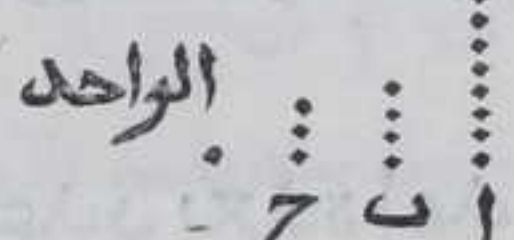 الواحد
ا ب ح